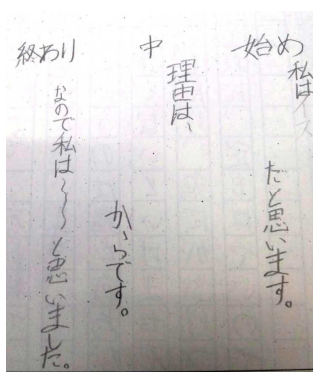 始め
私は
だと思います。
中
理由は、
からです。
終わり
なので私は〜〜〜と思いました。